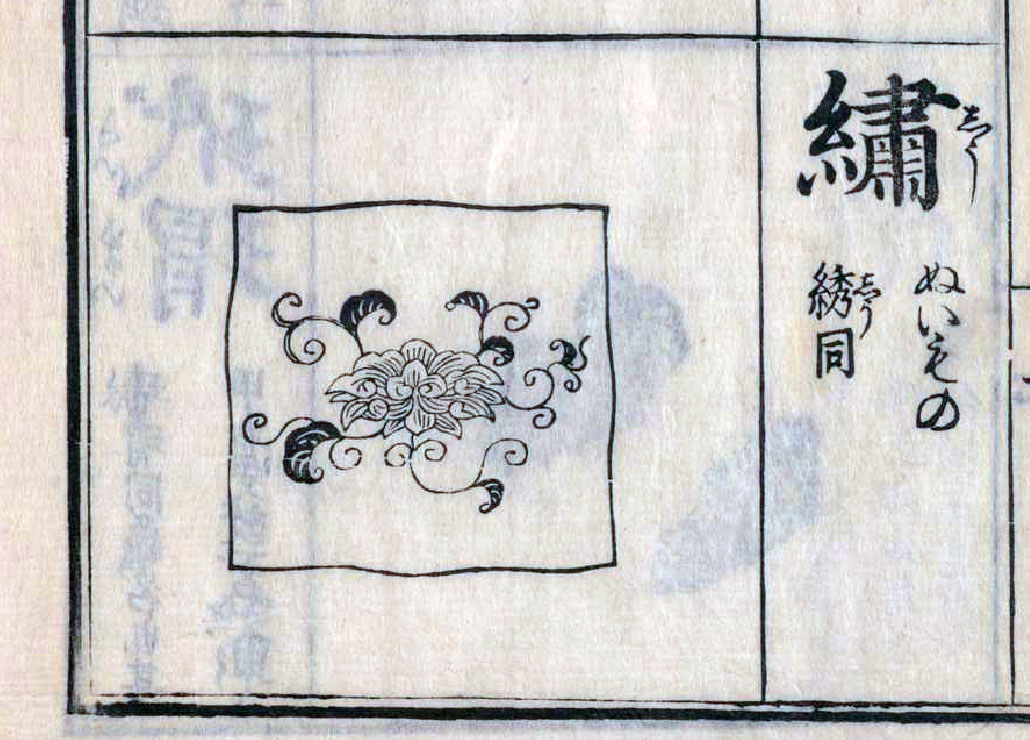 繡 しう
ぬいもの
綉同 しう